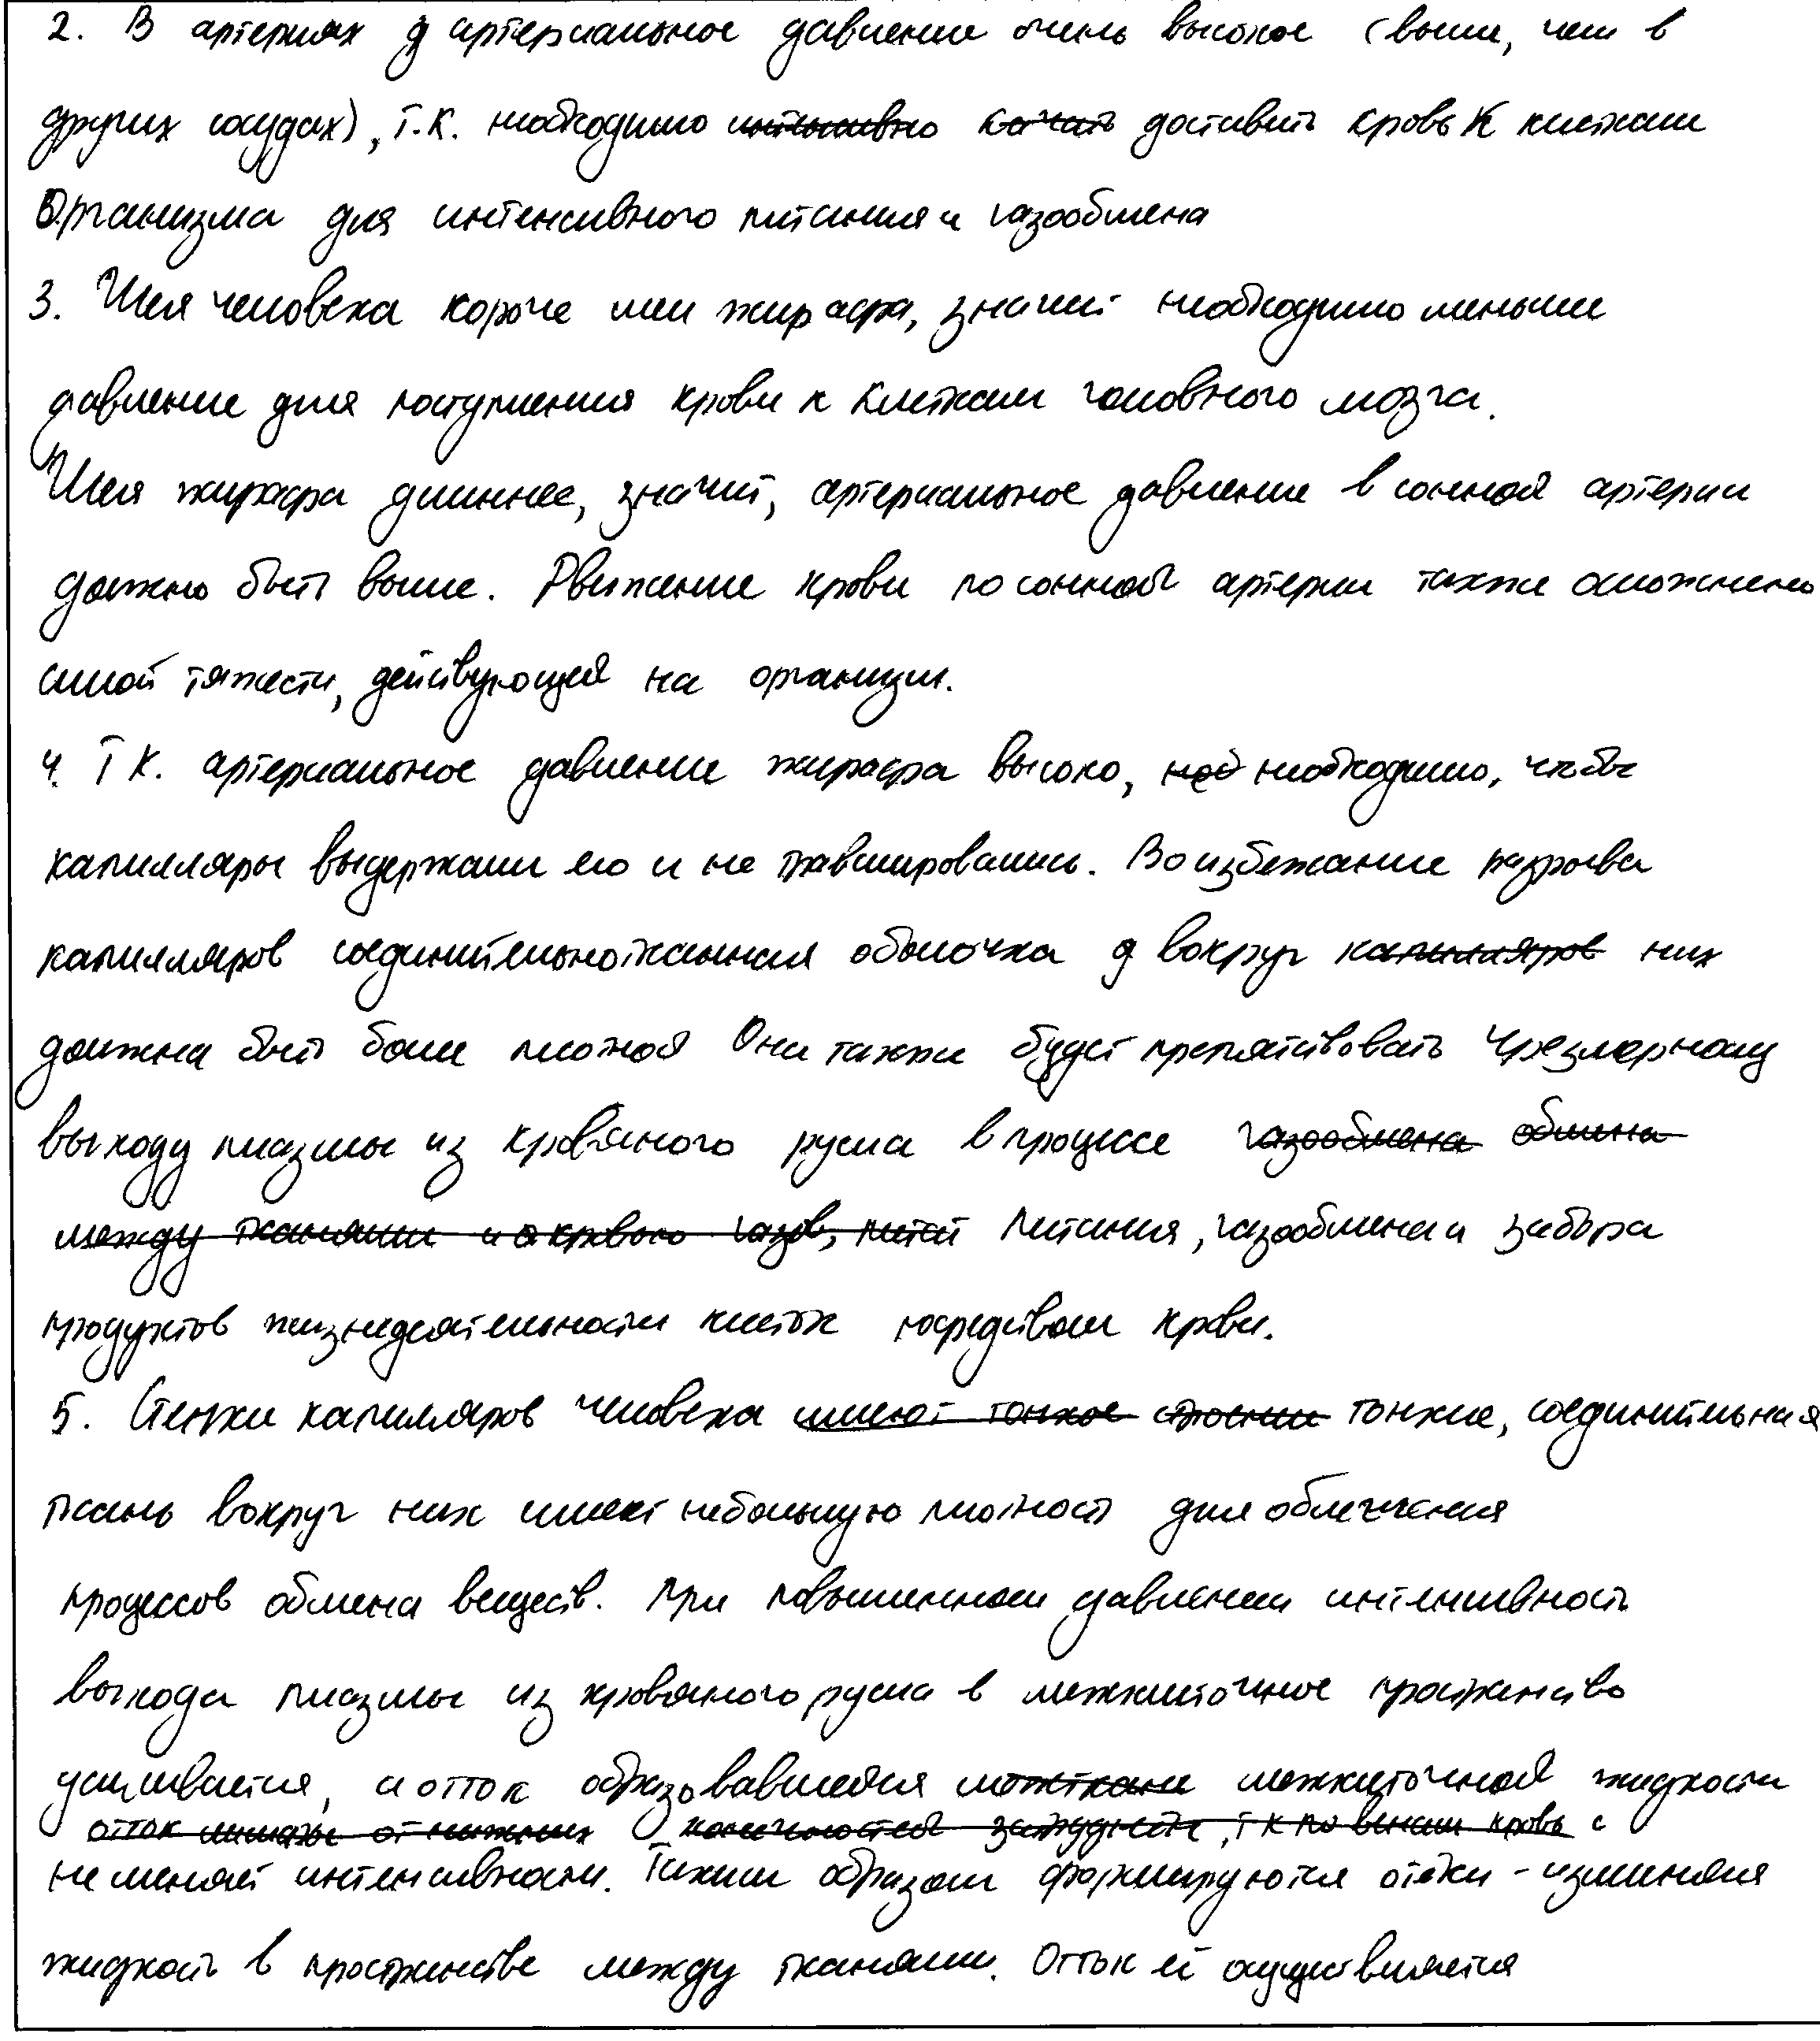 2. В артериях артериальное давление очень высокое (выше, чем в
других сосудах), т.к. необходимо интенсивно качать доставить кровь к клеткам
Организма для интенсивного питания и газообмена
3. Шея человека короче шеи жирафа, значит необходимо меньшее
давление для поступления крови к клеткам головного мозга.
Шея жирафа длиннее, значит, артериальное давление в сонной артерии
должно быть выше. Движение крови по сонной артерии также осложнено
силой тяжести, действующей на организм.
4. Т к. артериальное давление жирафа высоко, необходимо, чтобы
капилляры выдержали его и не травмировались. Во избежание разрыва
капилляров соединительнотканная оболочка вокруг капилляров них
должна быть более плотной Она также будет препятствовать чрезмерному
выходу плазмы из кровяного русла в процессе газообмена обмена
между тканями и кровью газов, питания, газообмена и забора
продуктов жизнедеятельности клеток посредством крови.
5. Стенки капилляров человека имеют тонкое строение тонкие, соединительная
ткань вокруг них имеет небольшую плотность для облегчения
процессов обмена веществ. При повышенном давлении интенсивность
выхода плазмы из кровяного русла в межклеточное пространство
усиливается, а отток образовавшейся межклеточной жидкости
отток лимфы от нижних конечностей затруднён, т к по венам кровь с
не меняет интенсивности. Таким образом формируются отёки - излишняя
жидкость в пространстве между тканями. Отток её осуществляется